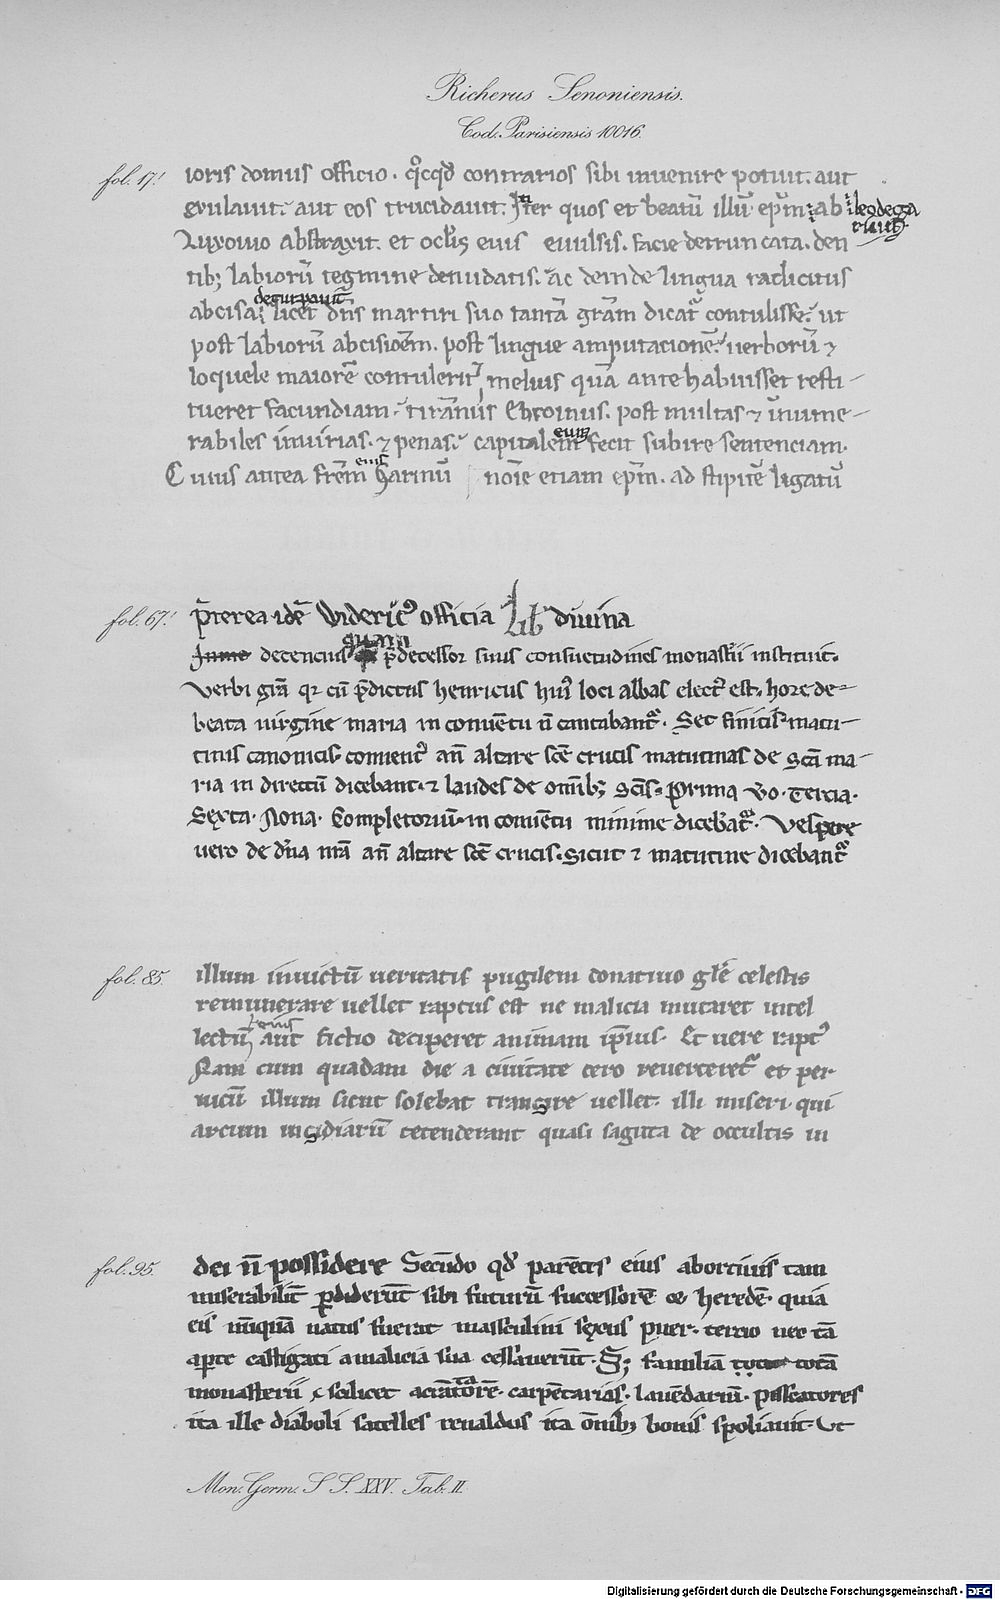 Richerus Senoniensis.
Cod. Parisiensis 10016.
fol. 17.'
ioris domus officio. qicqd contrarios sibi inuenire potuit. aut
exulauit. aut eos trucidauit. Inter quos et beatū illū epm. ab leodega
riuȝ.
Luxouio abstraxit. et oclis eius euulsis. facie detruncata. den
tibȝ labiorū tegmine denudatis. ac deinde lingua radicitus
deturpauit
abcisa. licet dns martiri suo tantā grām dicatr contulisse. ut
post labiorū abcisioēm. post lingue amputacionē. uerborū ⁊
loquele maiorē contulerit, melius quā ante habuisset resti-
tueret facundiam. tirānus Ebroinus. post multas ⁊ innume-
eum
rabiles iniurias. ⁊ penas. capitalem fecit subire sentenciam.
eius
Cuius autea frēm Garinū noīe etiam epm. ad stipitē ligatū
fol. 67.'
pterea idē Videricꝰ officia diuina
quam
decencius pdecessor suus consuetudines monastii instituit.
Verbi grā qr cū pdictus henricus huiꝰ loci abbas electꝰ est. hore de-
beata uirgine maria in conuētu n̄ cantabantr. Set finitis matu-
tinis canonicis conuentꝰ an̄ altare scē crucis matutinas de scā ma-
ria in directū dicebant. ⁊ laudes de omībȝ scīs. Prima vo. Tercia.
Sexta. Nona. Completoriū. in conuētu minime dicebātr. Vespere
uero de dna nrā an̄ altare scē crucis. sicut ⁊ matutine dicebantr
fol. 85.
illum inuictū ueritatis pugilem donatiuo glē celestis
remunerare uellet raptus est ne malicia mutaret intel
eius
lectū aut fictio deciperet animam ipsius. Et uere raptꝰ
Nam cum quadam die a ciuitate cero reuerteretr et per
uicū illum sicut solebat transire uellet. illi miseri qui
arcum insidiarū tetenderant quasi sagitta de occultis in
fol. 95.
dei n̄ possidere Secūdo qd parētes eius abortiuis tam
miserabilit pdiderūt sibi futurū successorē ⁊ heredē. quia
eis nūquā natus fuerat masculini sexus puer. tercio nec tā
apte castigati a malicia sua cessauerūt. Sȝ familiā totā
monasterii scilicet carpētarios. lauēdariū. piscatores
ita ille diaboli satelles renaldus ita omībȝ bonis spoliauit. Ut
Mon. Germ. S S. XXV. Tab. II.
Digitalisierung gefördert durch die Deutsche Forschungsgemeinschaft - DFG